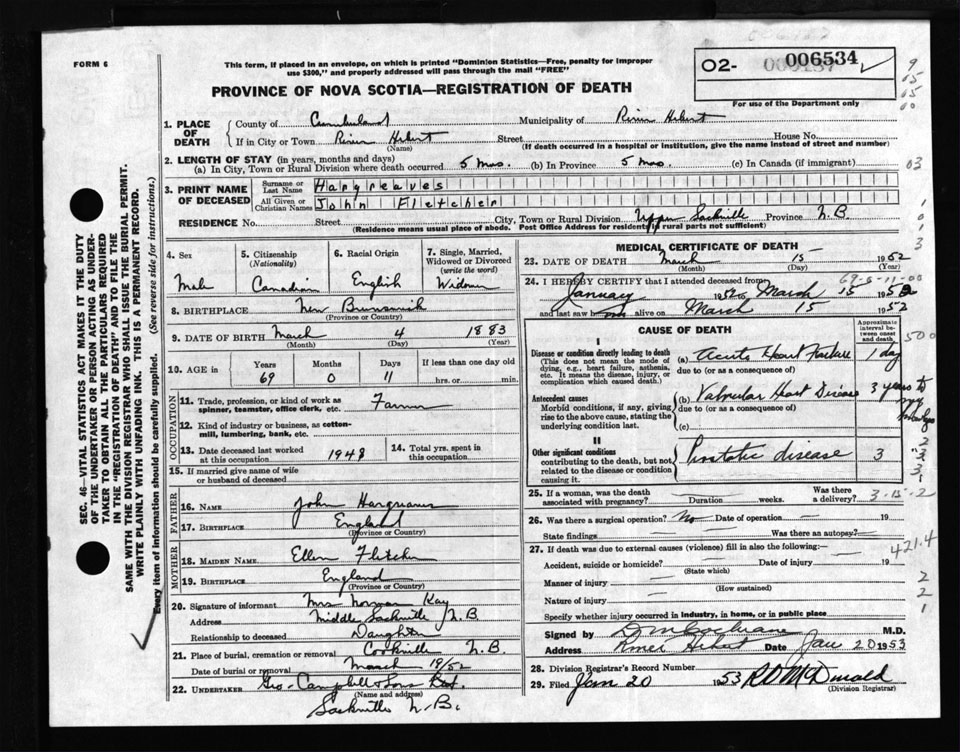 FORM 6
This form, if placed in an envelope, on which is printed "Dominion Statistics—Free, penalty for improper
use $300," and properly addressed will pass through the mail "FREE"
PROVINCE OF NOVA SCOTIA—REGISTRATION OF DEATH
O2- 006534
For use of the Department only
1. PLACE OF DEATH
County of Cumberland Municipality of River Hebert
If in City or Town River Hebert Street House No.
(Name) (If death occurred in a hospital or institution, give the name instead of street and number)
2. LENGTH OF STAY (in years, months and days)
(a) In City, Town or Rural Division where death occurred 5 mos. (b) In Province 5 mos. (c) In Canada (if immigrant)
3. PRINT NAME OF DECEASED
Surname or Last Name Hargreaves
All Given or Christian Names John Fletcher
RESIDENCE No. Street City, Town or Rural Division Upper Sackville Province N.B.
(Residence means usual place of abode. Post Office Address for residents in rural parts not sufficient)
4. Sex
Male
5. Citizenship
(Nationality)
Canadian
6. Racial Origin
English
7. Single, Married,
Widowed or Divorced
(write the word)
Widower
8. BIRTHPLACE New Brunswick
(Province or Country)
9. DATE OF BIRTH March 4 1883
(Month) (Day) (Year)
10. AGE in Years Months Days If less than one day old
69 0 11 hrs. or min.
OCCUPATION
11. Trade, profession, or kind of work as
spinner, teamster, office clerk, etc. Farmer
12. Kind of industry or business, as cotton-
mill, lumbering, bank, etc.
13. Date deceased last worked
at this occupation 1948
14. Total yrs. spent in
this occupation
15. If married give name of wife
or husband of deceased
FATHER
16. NAME John Hargreaves
17. BIRTHPLACE England
(Province or Country)
MOTHER
18. MAIDEN NAME Ellen Fletcher
19. BIRTHPLACE England
(Province or Country)
20. Signature of informant Mrs Norman Kay
Address Middle Sackville N.B.
Relationship to deceased Daughter
21. Place of burial, cremation or removal Cookville N.B.
Date of burial or removal March 18/52
22. UNDERTAKER Geo. Campbell & Sons
(Name and address)
Sackville N.B.
MEDICAL CERTIFICATE OF DEATH
23. DATE OF DEATH March 15 1952
(Month) (Day) (Year)
69-5-11-00
24. I HEREBY CERTIFY that I attended deceased from
January 1952 to March 15 1952
and last saw him alive on March 15 1952
CAUSE OF DEATH
Approximate
interval be-
tween onset
and death
I
Disease or condition directly leading to death
(This does not mean the mode of
dying, e.g., heart failure, asthenia,
etc. It means the disease, injury, or
complication which caused death.)
(a) Acute Heart Failure 1 day
due to (or as a consequence of)
Antecedent causes
Morbid conditions, if any, giving
rise to the above cause, stating the
underlying condition last.
(b) Valvular Heart Disease 3 years to
due to (or as a consequence of)
(c)
II
Other significant conditions
contributing to the death, but not
related to the disease or condition
causing it.
Prostatic disease 3 "
25. If a woman, was the death
associated with pregnancy? Duration weeks. Was there
a delivery?
26. Was there a surgical operation? No Date of operation — 19
State findings Was there an autopsy?
27. If death was due to external causes (violence) fill in also the following:—
Accident, suicide or homicide? Date of injury 19
(State which)
Manner of injury
(How sustained)
Nature of injury
Specify whether injury occurred in industry, in home, or in public place
421.4
Signed by J M Cochrane M.D.
Address River Hebert Date Jan 20 1953
28. Division Registrar's Record Number
29. Filed Jan 20 1953 R D McDonald
(Division Registrar)
SEC. 46—VITAL STATISTICS ACT MAKES IT THE DUTY
OF THE UNDERTAKER OR PERSON ACTING AS UNDER-
TAKER TO OBTAIN ALL THE PARTICULARS REQUIRED
IN THE "REGISTRATION OF DEATH" AND TO FILE THE
SAME WITH THE DIVISION REGISTRAR WHO SHALL ISSUE THE BURIAL PERMIT.
WRITE PLAINLY WITH UNFADING INK. THIS IS A PERMANENT RECORD.
Every item of information should be carefully supplied. (See reverse side for instructions.)